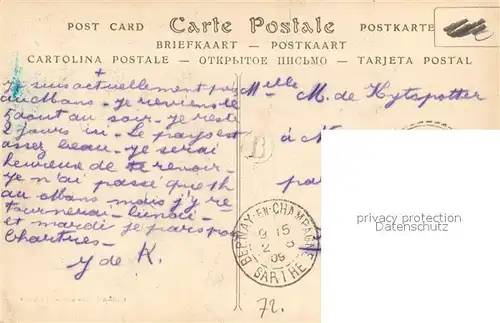 POST CARD Carte Postale POSTKARTE
BRIEFKAART — POSTKAART
CARTOLINA POSTALE — ОТКРЫТОЕ ПИСЬМО — TARJETA POSTAL
+
Je suis actuellement
au Mans. Je reviens le
5 août au soir. Je reste
2 jours ici. Le pays est
assez beau. Je serai
heureux de te revoir.
Je n'ai passé que 1h
au Mans mais j'y re
tournerai lundi
et mardi je pars po
Chartres.
Y de K.
Melle M. de Kytspotter
à
B
BERNAY-EN-CHAMPAGNE
9 15
2 8
09
SARTHE
72.
privacy protection
Datenschutz